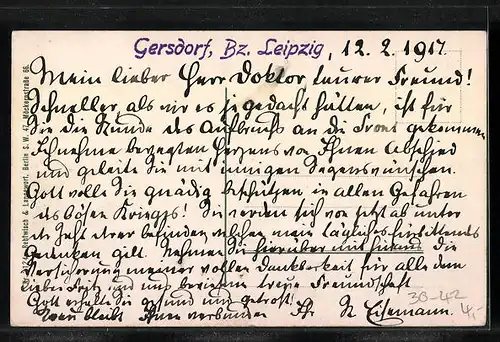 Gersdorf, Bz. Leipzig, 12. 2. 1917.
Mein lieber Herr Doktor, teurer Freund!
Schneller, als wir es je gedacht hätten, ist für
Sie die Stunde des Aufbruchs an die Front gekommen
Ich nehme bewegten Herzens von Ihnen Abschied
und geleite Sie mit innigen Segenswünschen.
Gott wolle Sie gnädig beschützen in allen Gefahren
des bösen Kriegs! Sie werden sich von jetzt ab unter
der Zahl derer befinden, welchen mein tägliches fürbittendes
Gedenken gilt. Nehmen Sie hierüber mit die
Versicherung meiner vollen Dankbarkeit für alle dem
lieben Fritz und uns treue Freundschaft
Gott erhalte Sie gesund und getrost!
bleibt Ihnen verbunden Ihr Eisemann.
30-42
4,-
Rethwisch & Berlin S. W. 47, Möckernstraße 66.